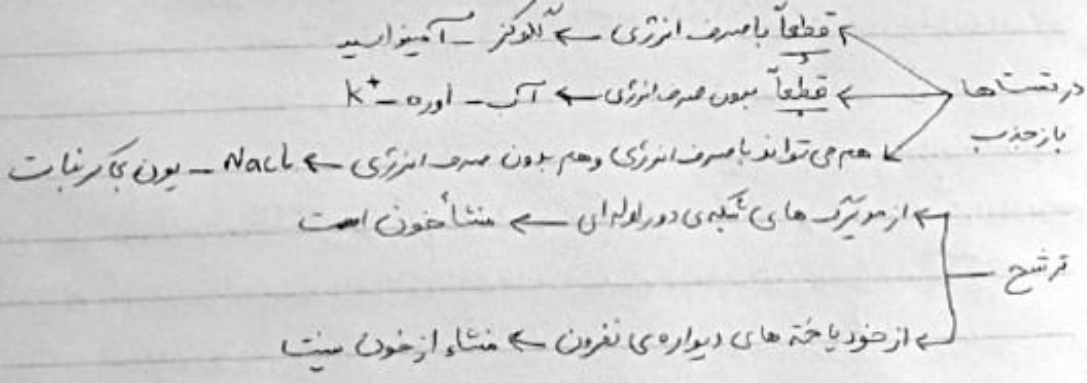 قطعاً با صرف انرژی ← گلوکز - آمینواسید
در تست‌ها
قطعاً بدون صرف انرژی ← آب - اوره - K⁺
بازجذب
هم می‌تواند با صرف انرژی و هم بدون صرف انرژی ← NaCl - یون بی‌کربنات
از مویرگ های شبکه‌ی دور لوله‌ای ← منشأ خون است
ترشح
از خود یاخته های دیواره‌ی نفرون ← منشاء از خون نیست